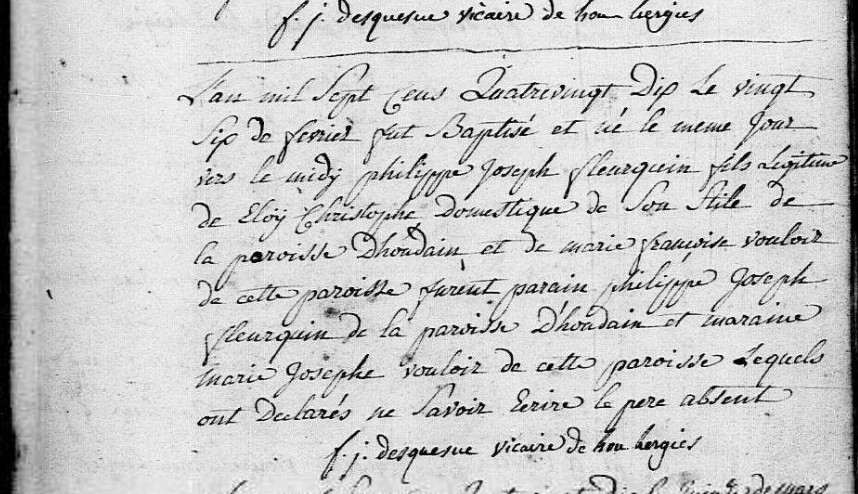 f. j. desquesne vicaire de hon hergies
L'an mil Sept Cens Quatrevingt Dix Le vingt
Six de fevrier fut Baptisé et né le meme Jour
vers le midy philippe Joseph fleurquin fils Legitime
de Eloÿ Christophe Domestique de Son Stile de
la paroisse Dhoudain et de marie françoise vouloir
de cette paroisse furent parain philippe Joseph
fleurquin de la paroisse D'houdain et maraine
marie Josephe vouloir de cette paroisse Lequels
ont Declarés ne Savoir Ecrire le pere absent
f. j. desquesne vicaire de hon hergies
de mars